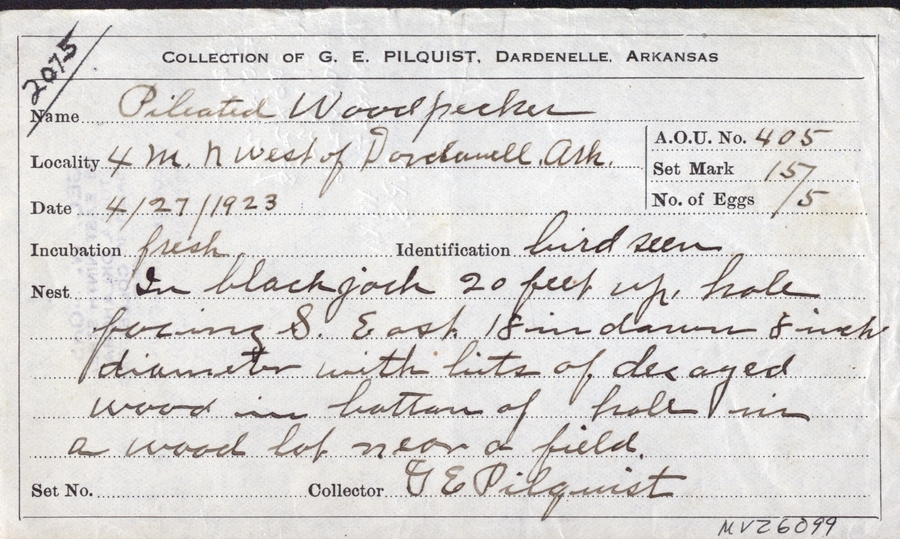 2075
COLLECTION OF G. E. PILQUIST, DARDENELLE, ARKANSAS
Name Pileated Woodpecker
Locality 4 M. N West of Dardanell. Ark.
A.O.U. No. 405
Date 4/27/1923
Set Mark 157
No. of Eggs /5
Incubation fresh Identification bird seen
Nest In black jack 20 feet up, hole
facing S. East. 18 in down 8 inch
diameter with bits of decayed
wood in bottom of hole in
a wood lot near a field.
Set No. Collector G E Pilquist
MVZ6099